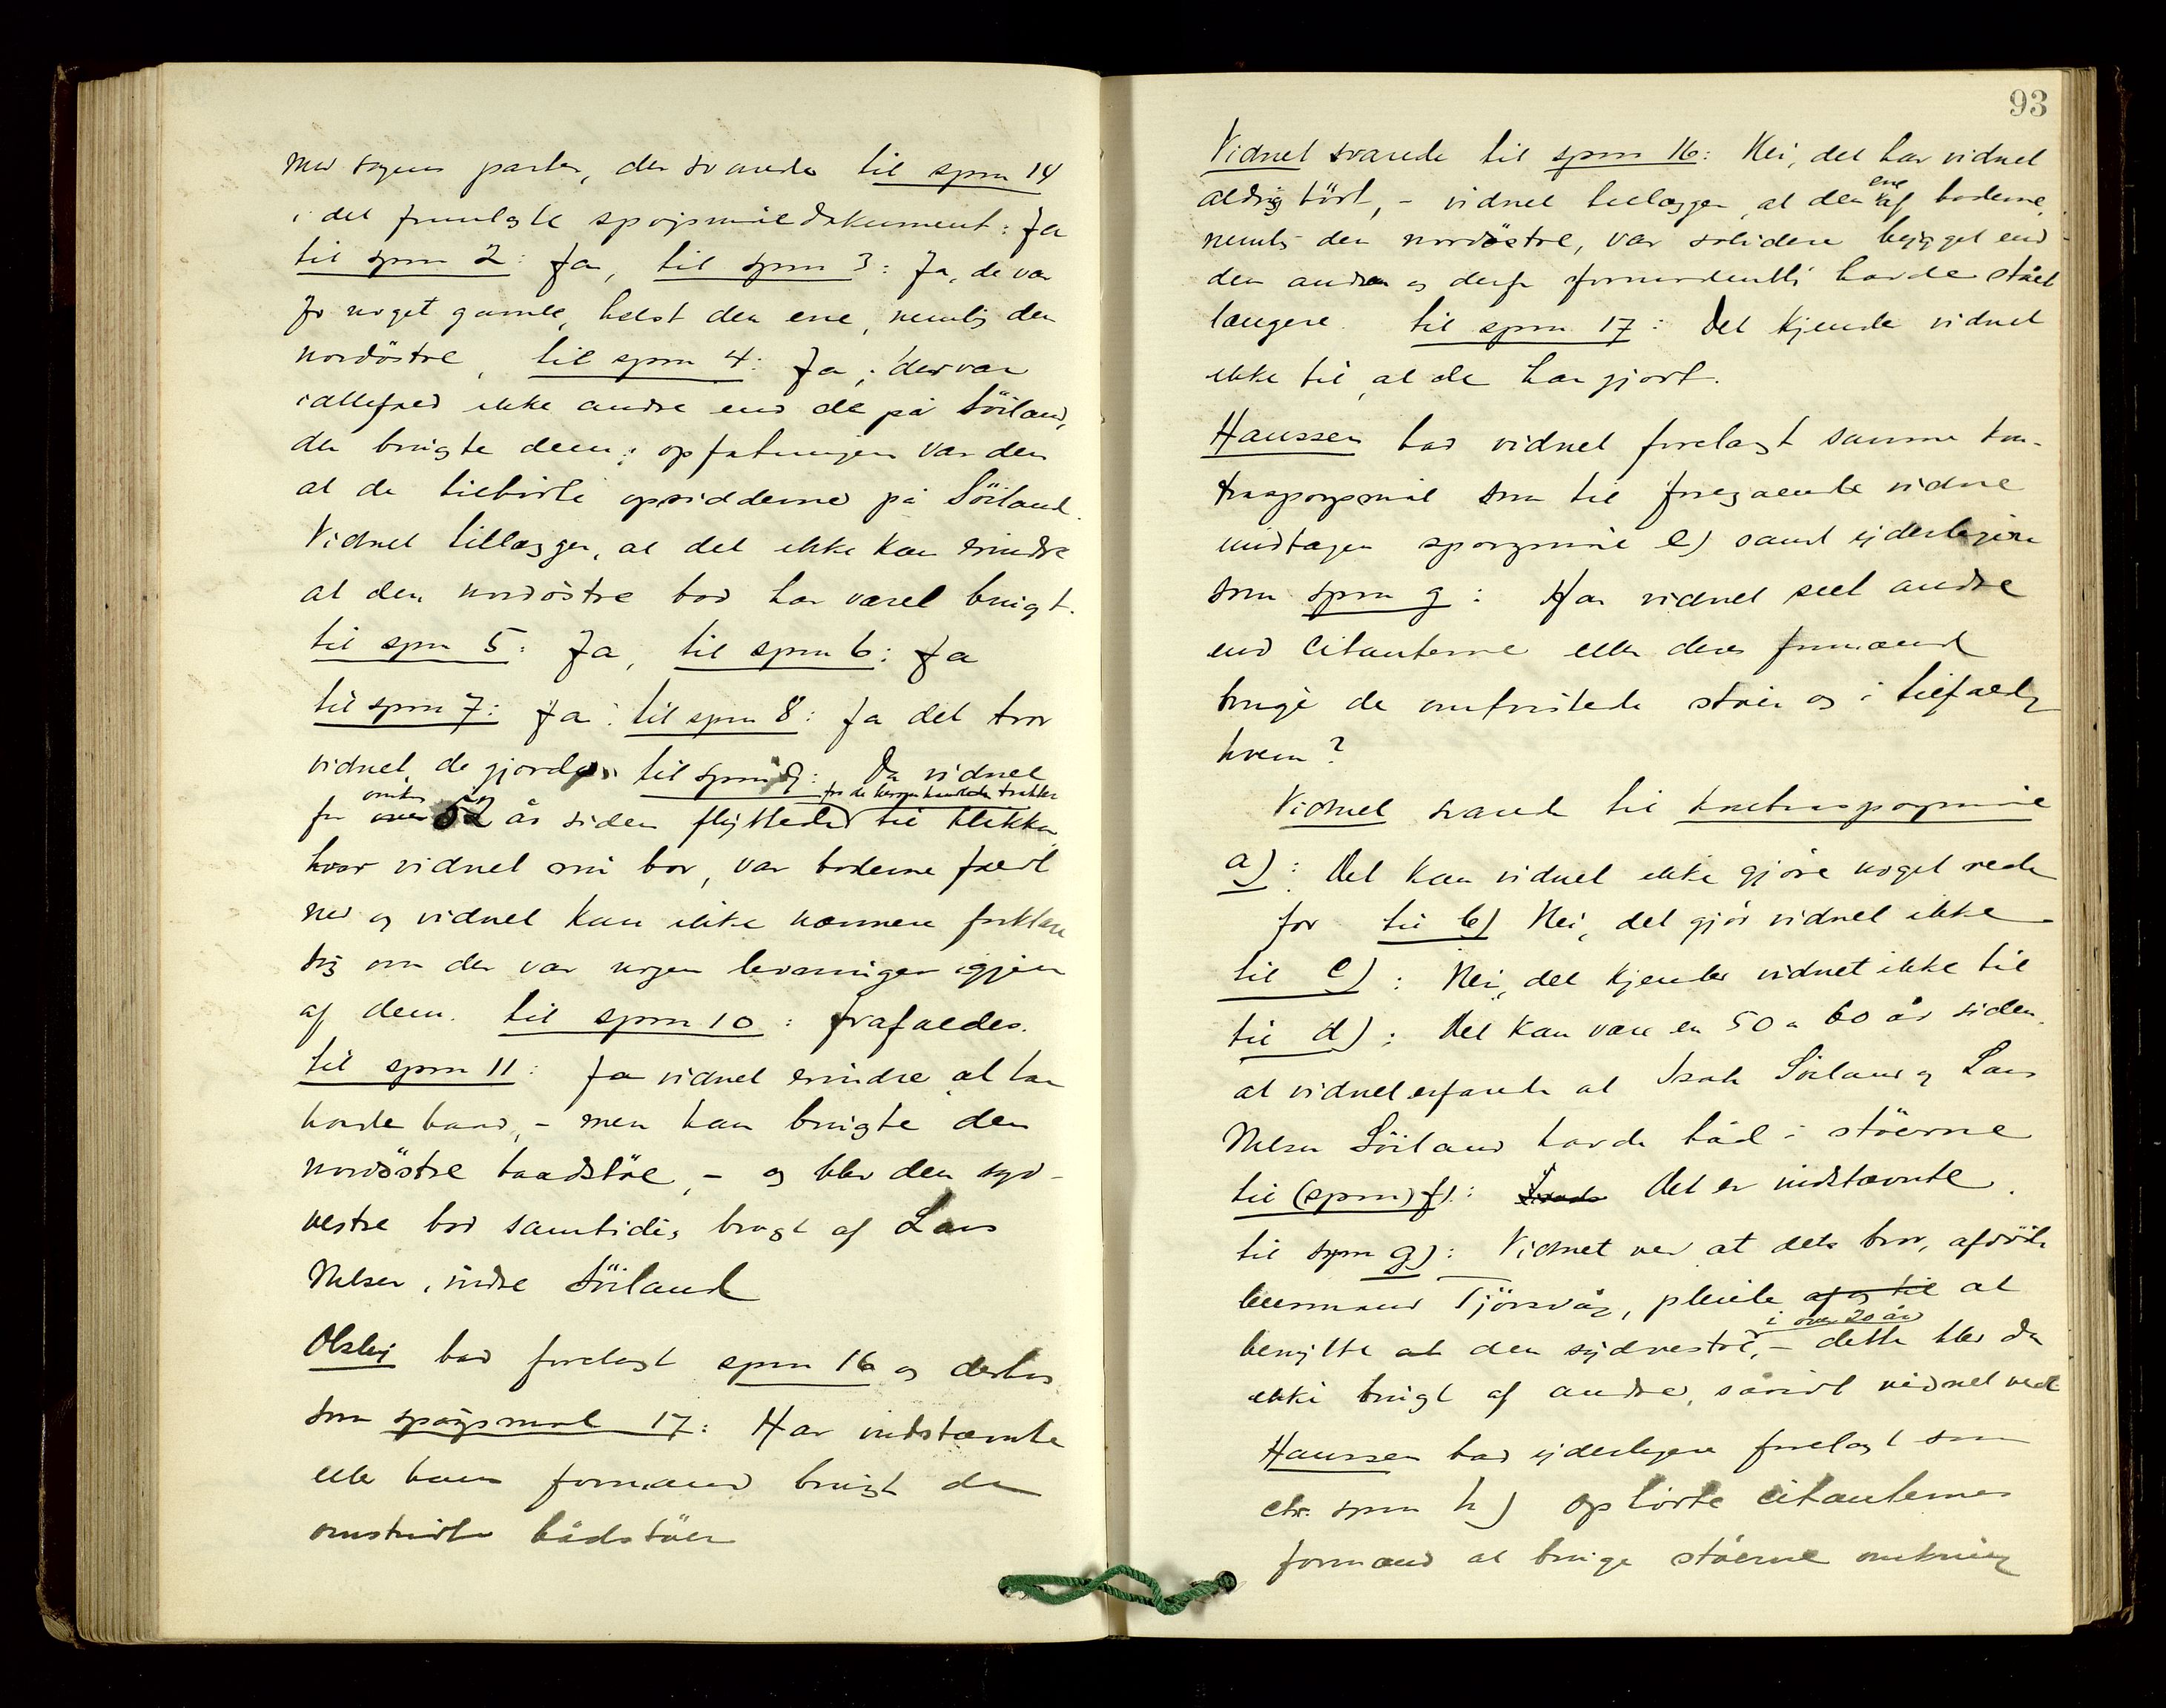 med sagens parter, der svarede til spm 14
i det fremlagte spørsmåldokument: Ja
til spm 2: Ja, til spm 3: Ja, de var
jo noget gamle, helst den ene, nemlig den
nordöstre, til spm 4: Ja, der var
iallefald ikke andre end de på Söiland,
der brugte dem; opfatningen var den
at de tilhörte opsidderne på Söiland.
Vidnet tillægger, at det ikke kan erindre
at den nordöstre bod har været brugt.
til spm 5: Ja, til spm 6: Ja
til spm 7: Ja: til spm 8: Ja det tror
vidnet, de gjorde, til spm 9: Da vidnet
for omkr 52 år siden flyttede fra de heromhandlede trakter til Klekken
hvor vidnet nu bor, var boderne faldt
ned og vidnet kan ikke nærmere forklare
sig om der var nogen levninger igjen
af dem. til spm 10: frafaldes.
til spm 11: Ja vidnet erindre at han
havde baad, – men han brugte den
nordöstre baadstöe, – og blev den syd-
vestre bod samtidig brugt af Lars
Nelsen, indre Söiland
Olsby bad forelagt spm 16 og derhos
som spøgsmal 17: Har indstævnte
eller hans formænd brugt de
omstridte bådstöer
93
Vidnet svarede til spm 16: Nei, det har vidnet
aldrig hört, – vidnet tillægger, at den ene af boderne,
nemlig den nordöstre, var solidere bygget end
den anden og derfor formodentli havde stået
længere. til spm 17: Det kjende vidnet
ikke til, at de har gjort.
Hanssen bad vidnet forelagt samme kon-
traspørgsmål som til foregaaende vidne
undtagen spørgsmål e) samt yderligere
som spm g: Har vidnet seet andre
end Citanterne eller deres formænd
bruge de omtvistede stöer og i tilfælde
hvem?
Vidnet svarede til kontraspørgsmål
a): Det kan vidnet ikke gjöre noget rede
for til b) Nei, det gjör vidnet ikke
til c): Nei, det kjender vidnet ikke til
til d): Det kan være en 50 a 60 år siden,
at vidnet erfarede at Isak Söiland og Lars
Nelsen Söiland havde båd i stöerne
til (spm) f): Det er indstævnte.
til spm g): Vidnet ved at dets bror, afdöde
lensmand Tjörsvåg, pleiede af og til at
benytte at den sydvestre, i over 20 år – dette blev da
ikke brugt af andre, såvidt vidnet ved
Hanssen bad yderligere forelagt som
ctr. spm h) Ophörte citanternes
formænd at bruge stöerne omkring